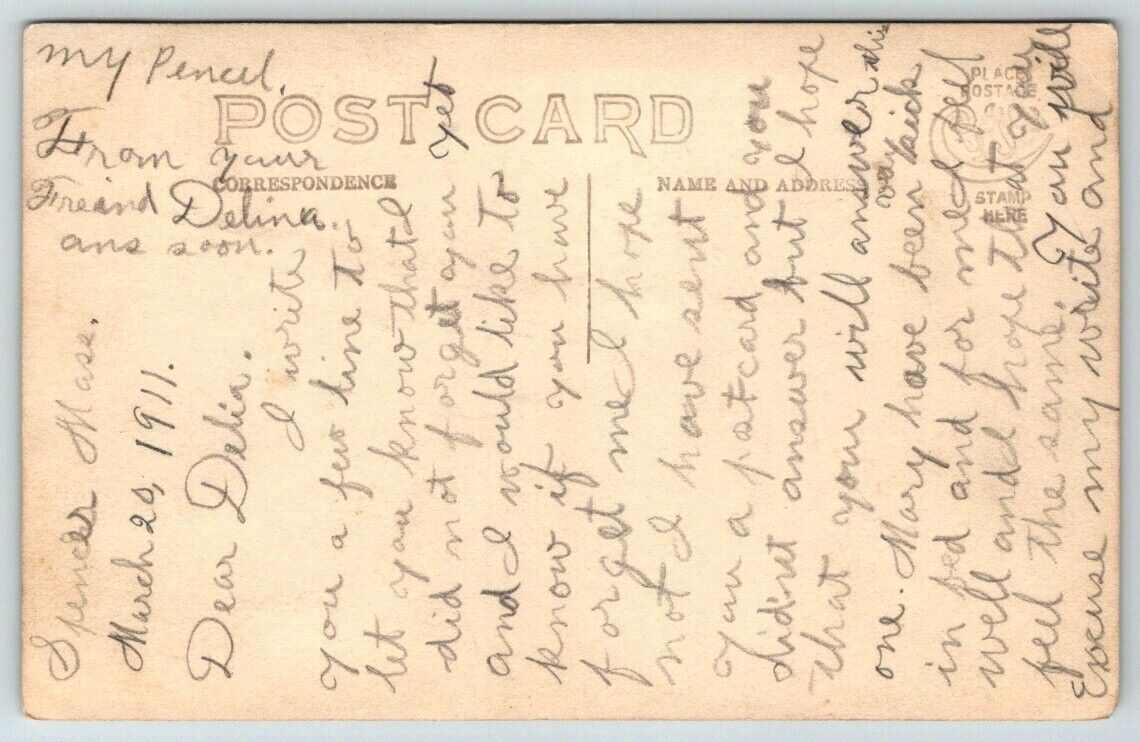 POST CARD
CORRESPONDENCE
NAME AND ADDRESS
PLACE
POSTAGE
STAMP
HERE
Spencer Mase.
March 20, 1911.
Dear Delia.
I write
you a few line to
let you know that I
did not forget you yet
and I would like to
know if you have
forget me I hope
not I have sent
you a postcard and you
didnt answer but I hope
that your will answer this
one. Mary have been very sick
in bed and for me I feel
well and I hope that you
feel the same.
Excuse my write and
my Pencil.
From your
Freind Delina.
ans soon.